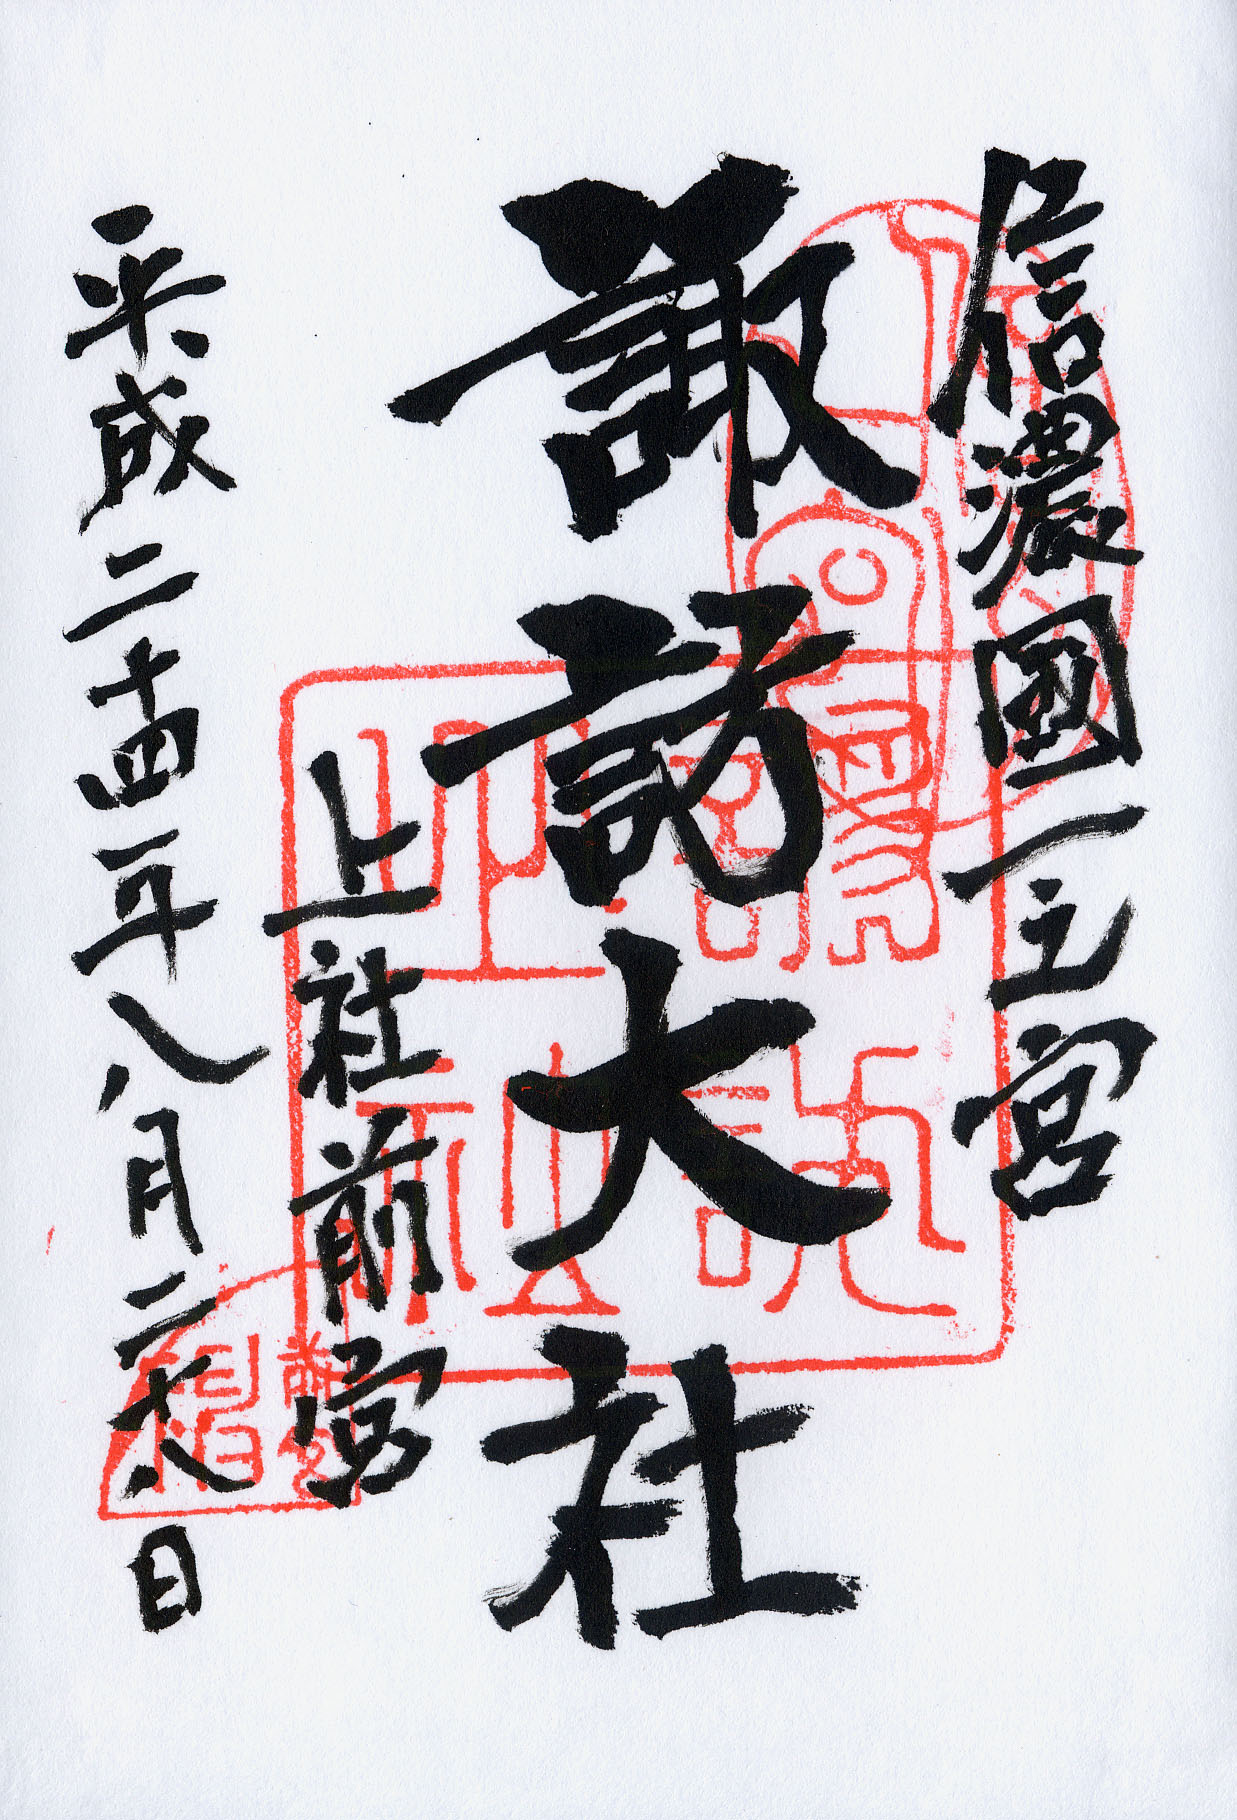 信濃國一之宮
諏訪大社
上社前宮
平成二十四年八月二十八日